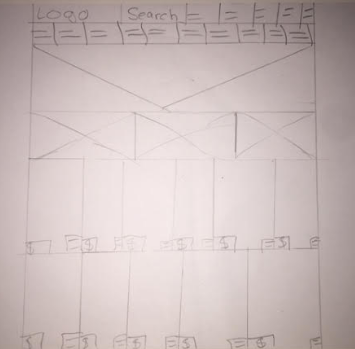 Logo Search
$ $ $ $ $ $
$ $ $ $ $